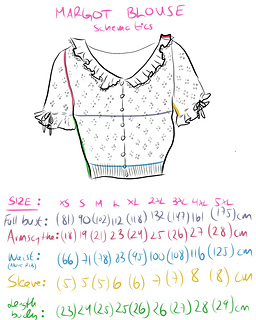 MARGOT BLOUSE
Schematics
SIZE: XS S M L XL 2XL 3XL 4XL 5XL
Full bust: (81) 90 (102) 112 (118) 132 (147) 161 (175) cm
Armscythe: (18) 19 (21) 23 (24) 25 (26) 27 (28) cm
Waist: (66) 71 (78) 83 (95) 100 (108) 116 (125) cm
Sleeve: (5) 5 (5) 6 (6) 7 (7) 8 (8) cm
Length body: (23) 24 (25) 25 (26) 26 (27) 28 (29) cm